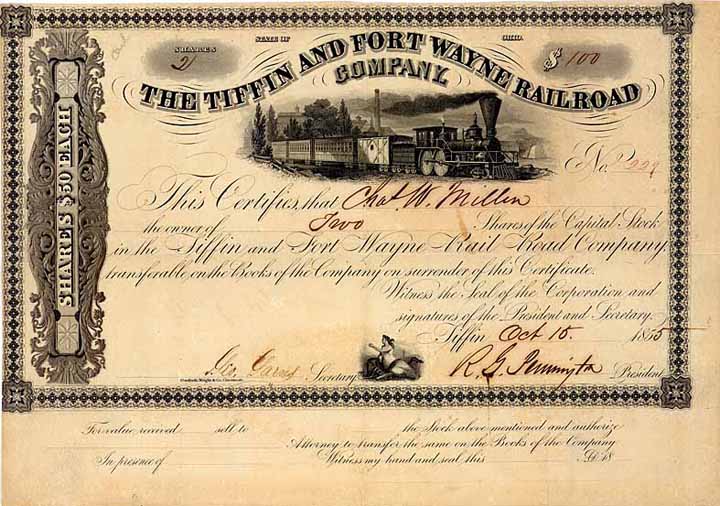 SHARES
2
STATE OF
OHIO.
$ 100
THE TIFFIN AND FORT WAYNE RAILROAD
COMPANY.
SHARES $50 EACH
No. 229
This Certifies, that Chas W. Millen
the owner of Two Shares of the Capital Stock
in the Tiffin and Fort Wayne Rail Road Company,
transferable, on the Books of the Company on surrender of this Certificate.
Witness the Seal of the Corporation and
signatures of the President and Secretary.
Tiffin Oct 15. 1855
Secretary
R. G. Pennington President
For value received sell to the Stock above mentioned and authorize
Attorney to transfer the same on the Books of the Company
In presence of Witness my hand and seal this A.D. 18